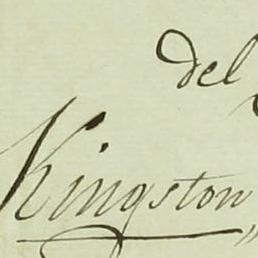 del
Kingston